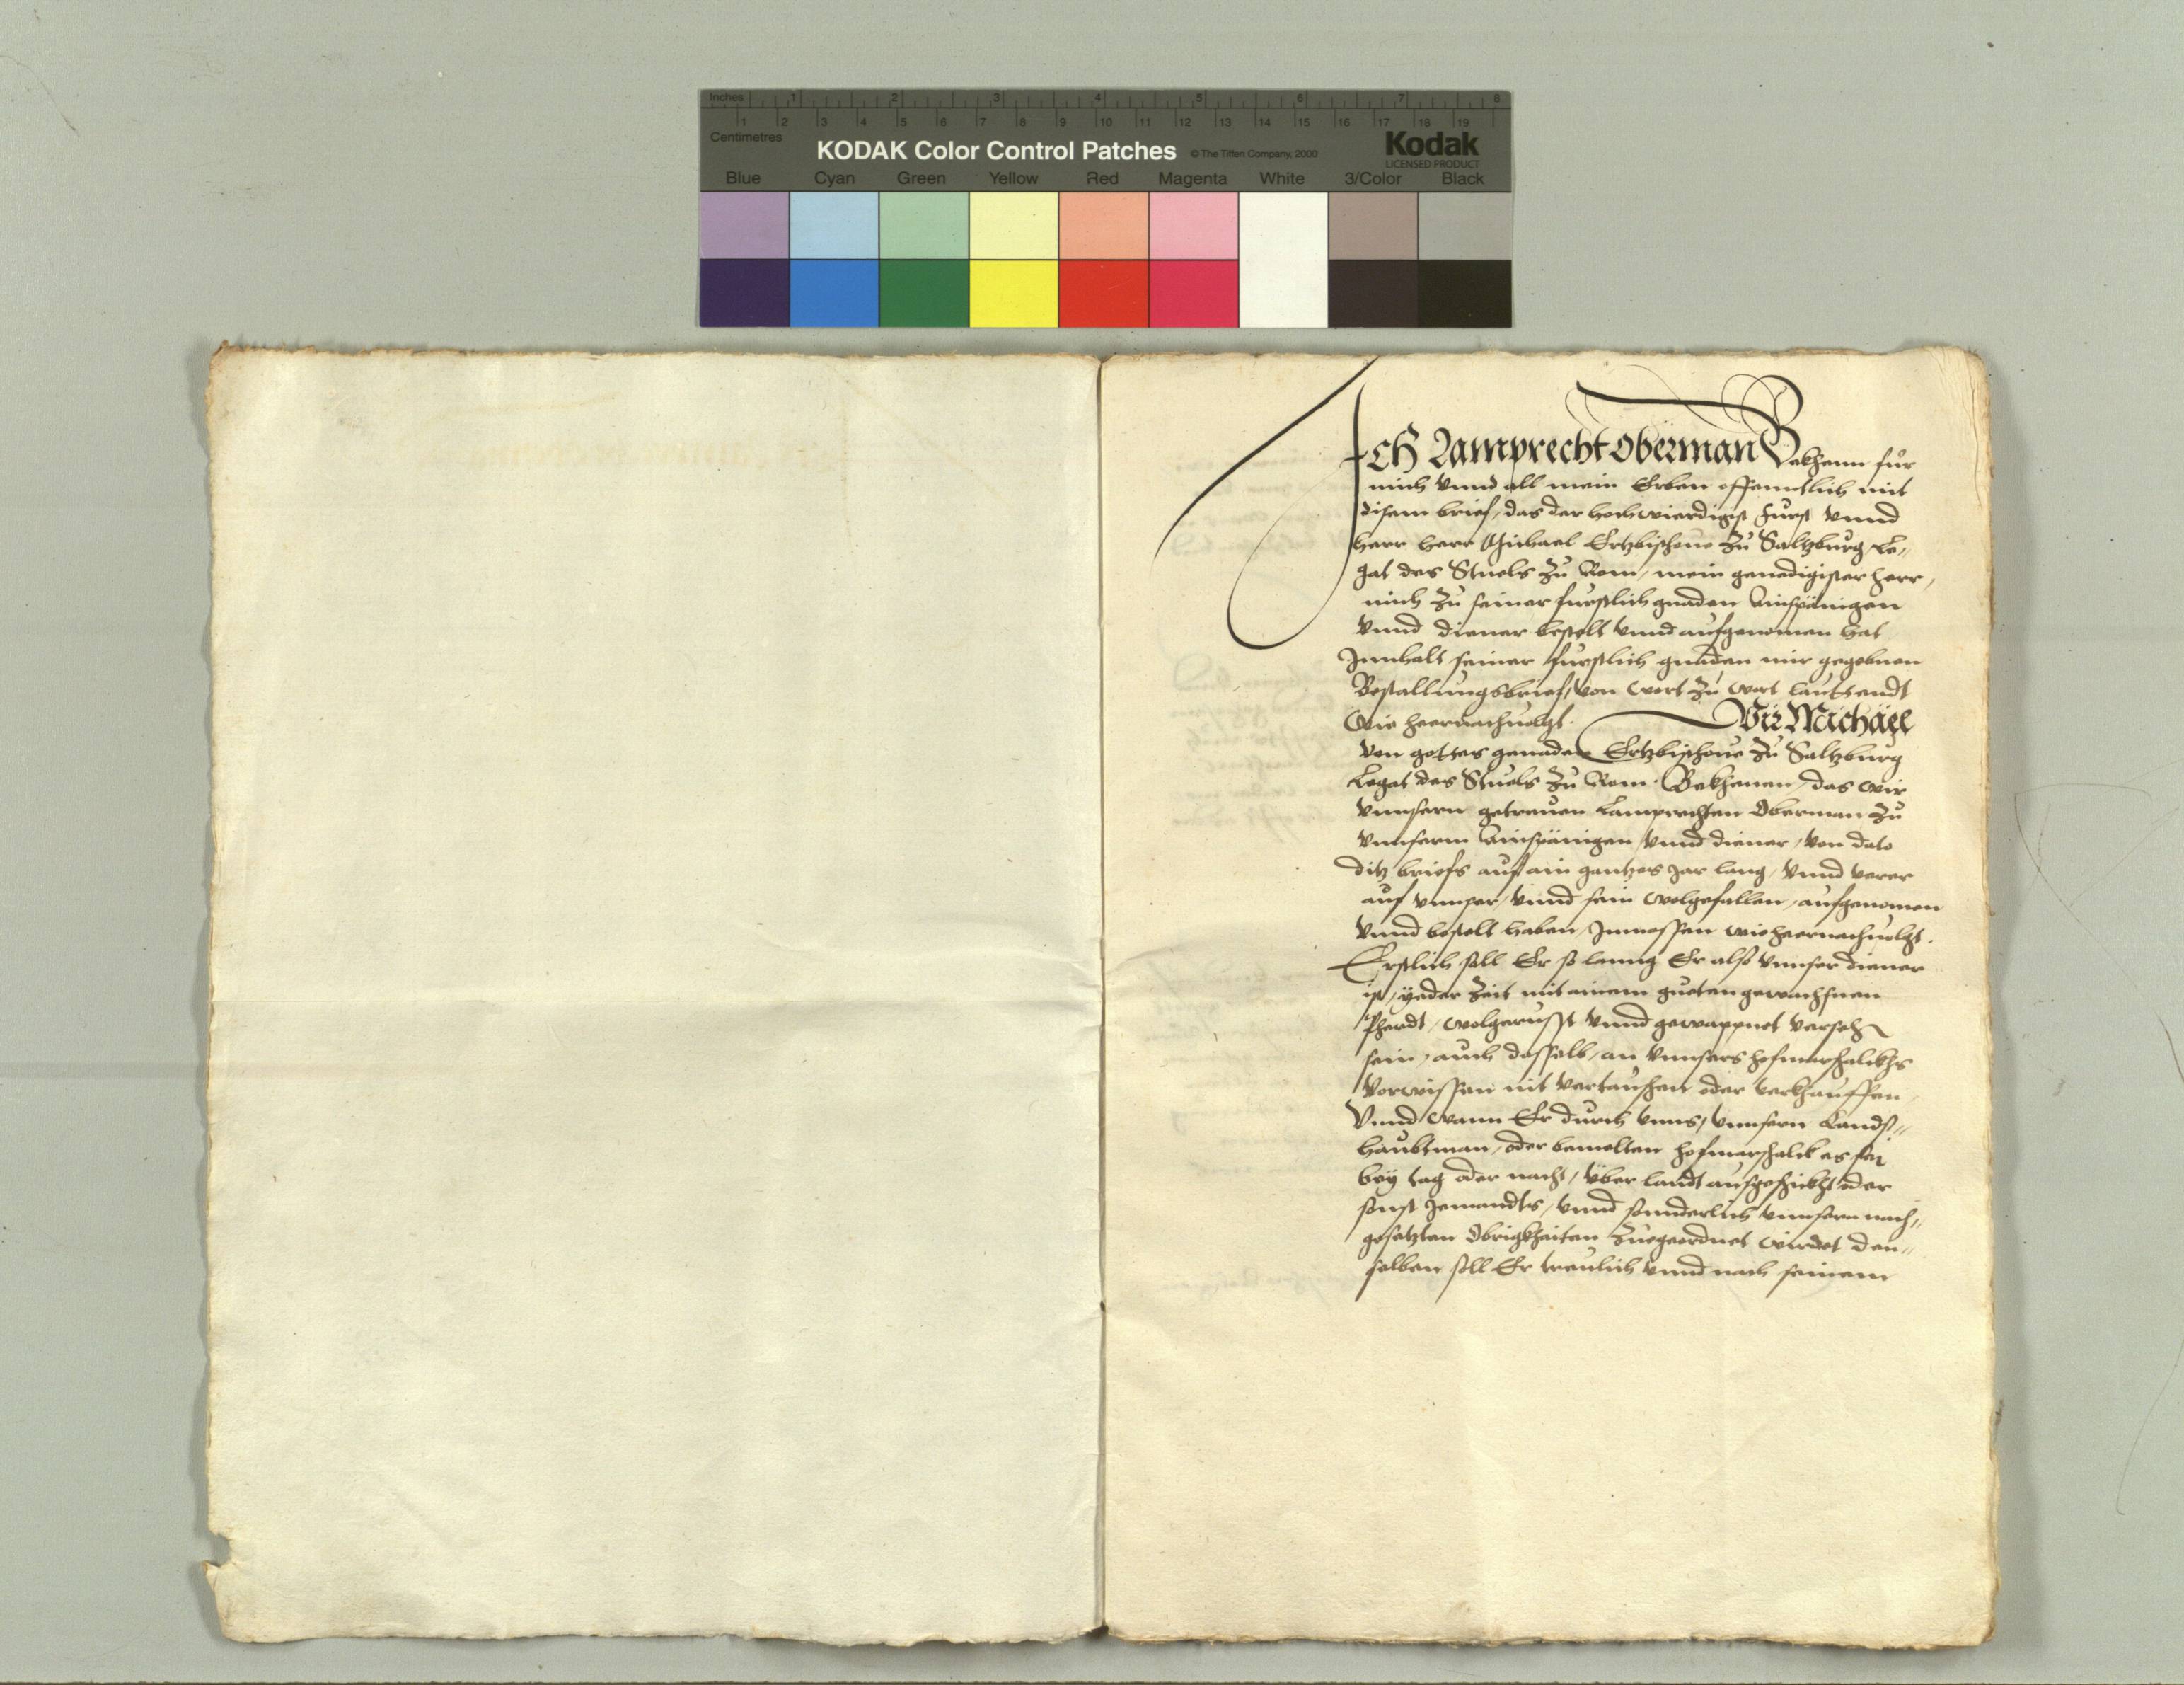 Inches 1 2 3 4 5 6 7 8
1 2 3 4 5 6 7 8 9 10 11 12 13 14 15 16 17 18 19
Centimetres
KODAK Color Control Patches © The Tiffen Company, 2000 Kodak
LICENSED PRODUCT
Blue Cyan Green Yellow Red Magenta White 3/Color Black
Ich Lamprecht Oberman Bekhenn für
mich vnnd all mein Erben offenntlich mit
disem brief, das der hochwierdigist Fürst vnnd
herr herr Michael Ertzbischoue zu Saltzburg, Le„
gat des Stuels zu Rom, mein genedigister herr,
mich zu seiner fürstlich gnaden Ainspänigen
vnnd diener bestelt vnnd aufgenomen hat
Innhalt seiner fürstlich gnaden mir gegebnen
Bestallungsbrief, von wort zu wort lauttendt
wie hernachuolgt. Wir Michäel
von gottes genaden Ertzbischoue zu Saltzburg
Legat des Stuels zu Rom. Bekhennen, das wir
vnnsern getreuen Lamprechten Oberman zu
vnnserm Ainspänigen vnnd diener, von dato
ditz briefs auf ain gantzes Jar lang, vnnd verer
auf vnnser, vnnd sein wolgefallen, aufgenomen
vnnd bestelt haben, Inmassen wie hernachuolgt.
Erstlich soll Er so lanng Er also vnnser diener
ist, yeder Zeit mit ainem gueten gewachsnen
Pherdt, wolgerüsst vnnd gewappnet versehen
sein, auch dasselb, an vnnsers hofmarschalckhs
vorwissen nit vertauschen oder verkhauffen,
Vnnd wann Er durch vnns, vnnsern Landts„
haubtman, oder bemelten hofmarschalck es sey
bey tag oder nacht, über landt ausgeschickht oder
sonst Jemandts, vnnd sonnderlich vnnsern nach„
gesetzten Obrigkhaiten zuegeordnet wirdet den„
selben soll Er treulich vnnd nach seinem